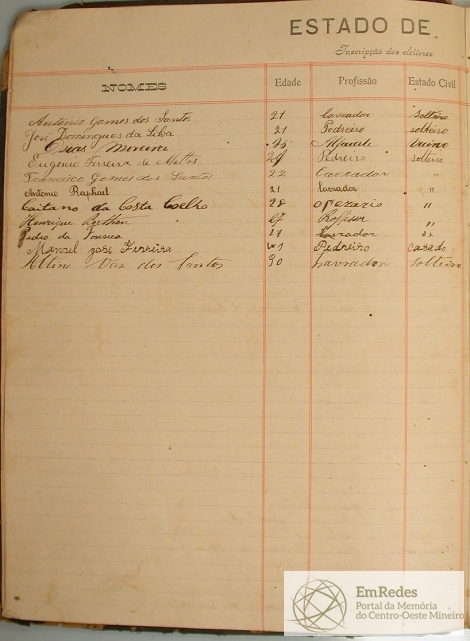 ESTADO DE
Inscripção dos eleitores
NOMES Edade Profissão Estado Civil
Antonio Gomes dos Santos 21 Lavrador Solteiro
José Domingues da Silva 21 Pedreiro solteiro
Ozias Moreira Alfaiate Viuvo
Eugenio Ferreira de Mattos Pedreiro solteiro
Francisco Gomes dos Santos 22 Lavrador "
Antonio Raphael 21 Lavrador "
Caitano da Costa Coelho 28 operario "
Henrique Professor "
Pedro da Fonseca 21 Lavrador "
Manoel José Ferreira Pedreiro casado
Altino Vaz dos Santos 30 Lavrador Solteiro
EmRedes
Portal da Memória
do Centro-Oeste Mineiro